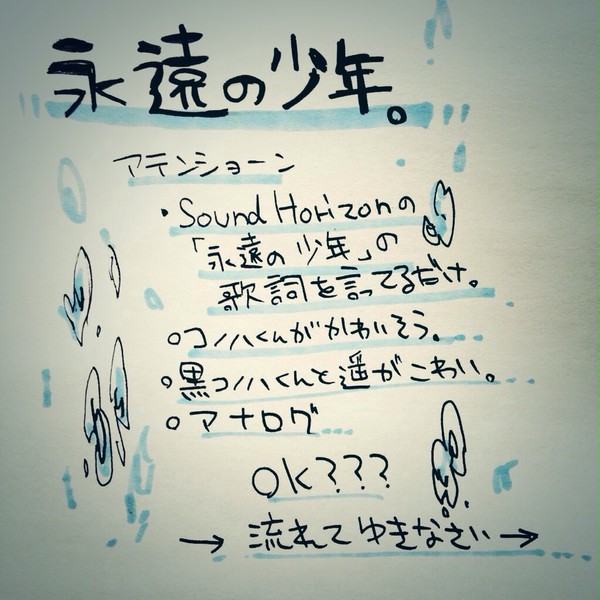 永遠の少年。
アテンショーン
・Sound Horizonの
「永遠の少年」の
歌詞を言ってるだけ。
○コノハくんがかわいそう。
○黒コノハくんと遥がこわい。
○アナログ…
OK???
→ 流れてゆきなさい →